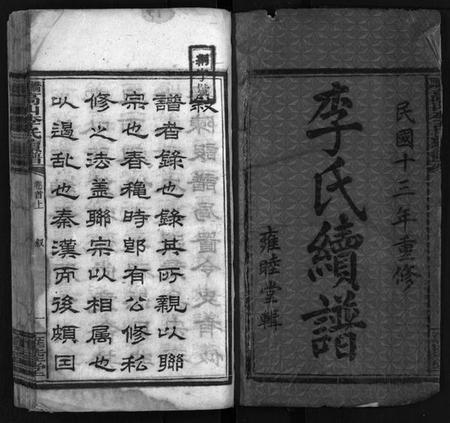 民國十三年重修
李氏續譜
雍睦堂輯
敘
譜者錄也錄其所親以聯
宗也春穐時郎有公修私
修之法蓋聯宗以相属也
以遏乱也秦漢而後頗因
李氏續譜
卷首上
敘